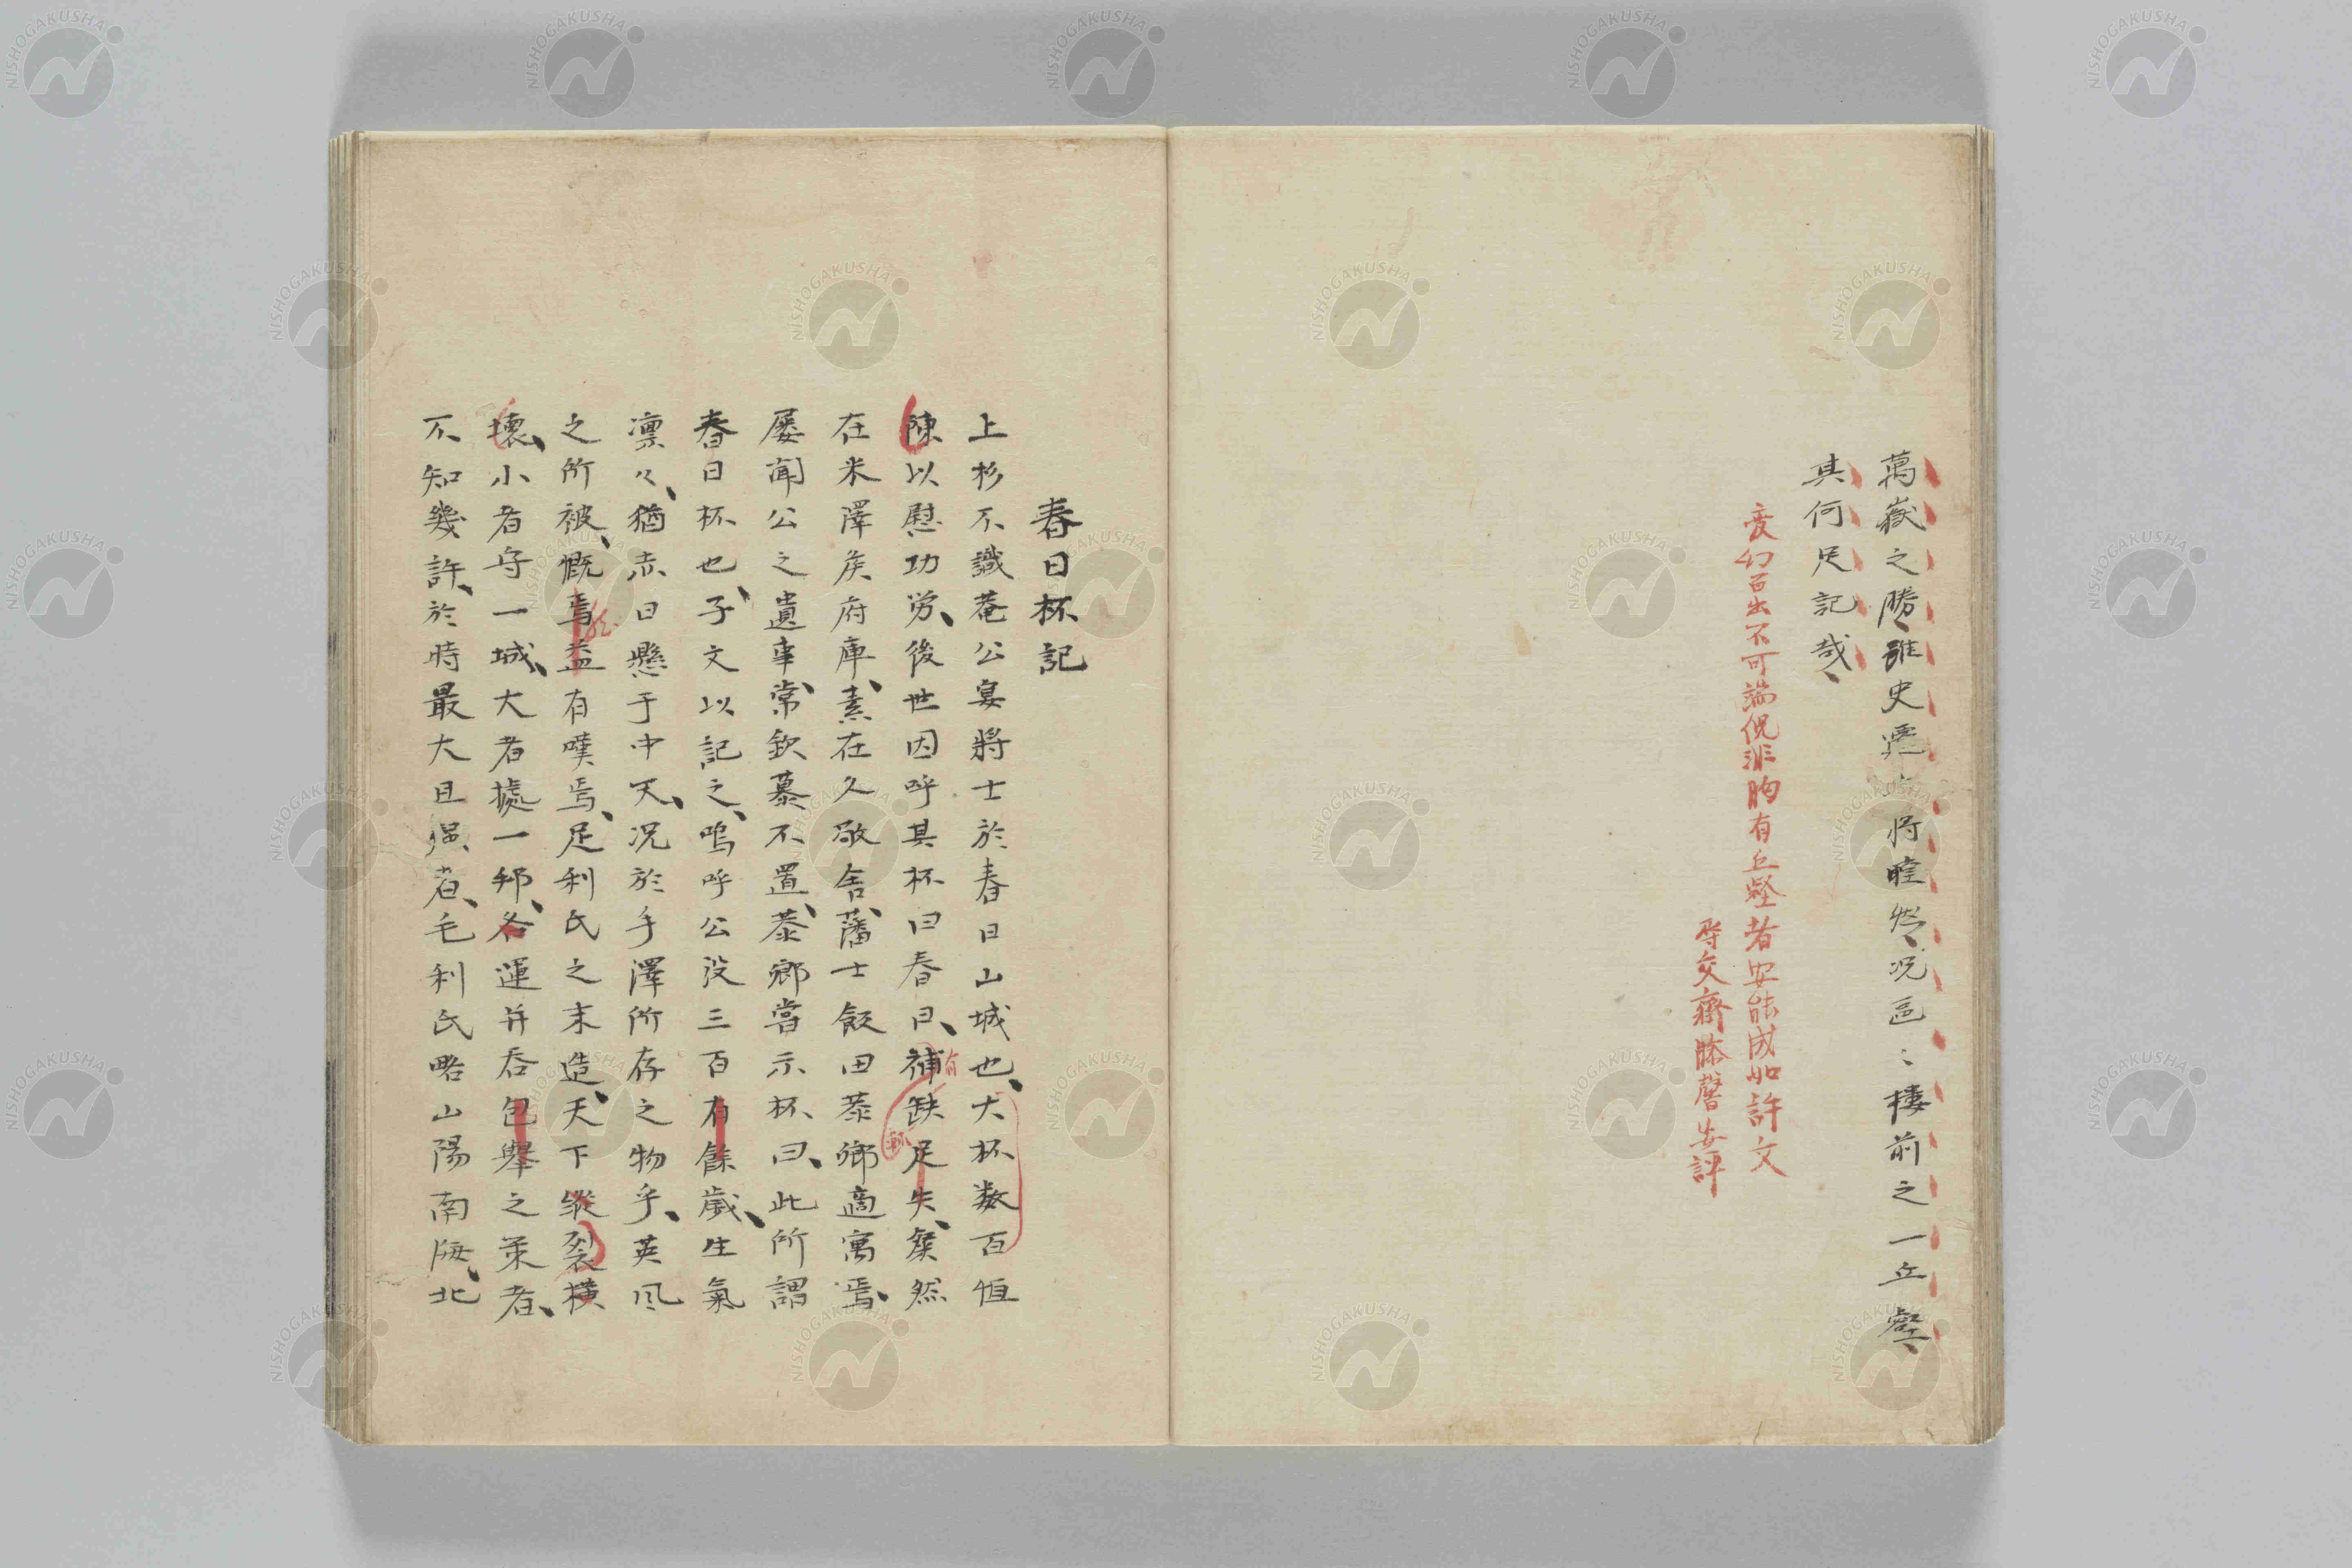 萬嶽之勝、雖史遷亦將瞠然、况區〻樓前之一丘壑、
其何足記哉、
変幻百出不可端倪非胸有丘壑者安能成如許文
辱交齊藤馨安評
春日杯記
上杉不識菴公宴將士於春日山城也、大杯数百恒
陳以慰功労、後世因呼其杯曰春日、補缺足失、粲然
有
在米澤矦府庫、素在久敬舍、藩士飯田恭鄉適寓焉、
屡闻公之遺事、常欽慕不置、恭鄉嘗示杯、曰、此所謂
春日杯也、子文以記之、嗚呼公没三百有餘歳、生氣
凛々、猶赤日懸于中天、况於手澤所存之物乎、英风
之所被、慨焉益有嘆焉、足利氏之末造、天下縱裂橫
壞、小者守一城、大者據一邦、各運并吞包舉之策者、
不知幾許、於時最大且强者、毛利氏略山陽南海、北